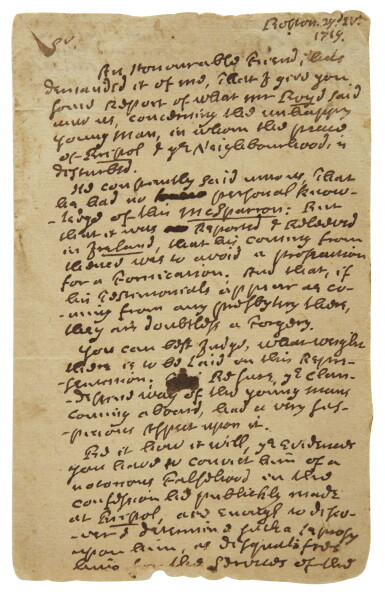 Boston. 29. IV.
1719.
Sr.
An Honourable Friend, has
demanded it of me, That I give you
some Report of what Mr Boyd said
unto us, concerning the unhappy
young Man, in whom the peace
of Bristol & ye Neighbourhood, is
disturbed.
He constantly said unto us, That
he had no personal Know-
-ledge of this McSparron: But
that it was Reported & Beleeved
in Ireland, that his coming from
thence was to avoid a prosecution
for a Fornication. And that, if
his Testimonials appear as co-
-ming from any presbytery there,
they are doubtless a Forgery.
You can best Judge, what weight
there is to be laid on this Repre-
-sentation: Be sure, ye clan-
-destine way of the young mans
coming aboard, had a very sus-
-picious aspect upon it.
Be it how it will, ye Evidences
you have to convict him of a
notorious Falsehood in the
confession he publickly made
at Bristol, are enough to disco-
-ver & determine such a Leprosy
upon him, as disqualifies
him for the Services of the